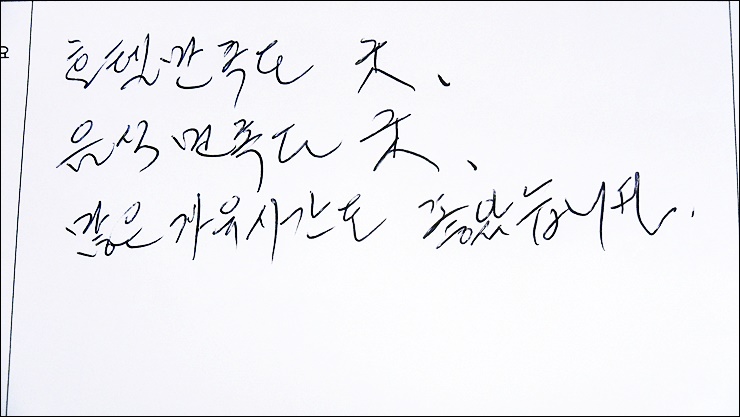 요
호텔만족도 굿、
음식만족도 굿、
많은 자유시간도 좋았습니다.